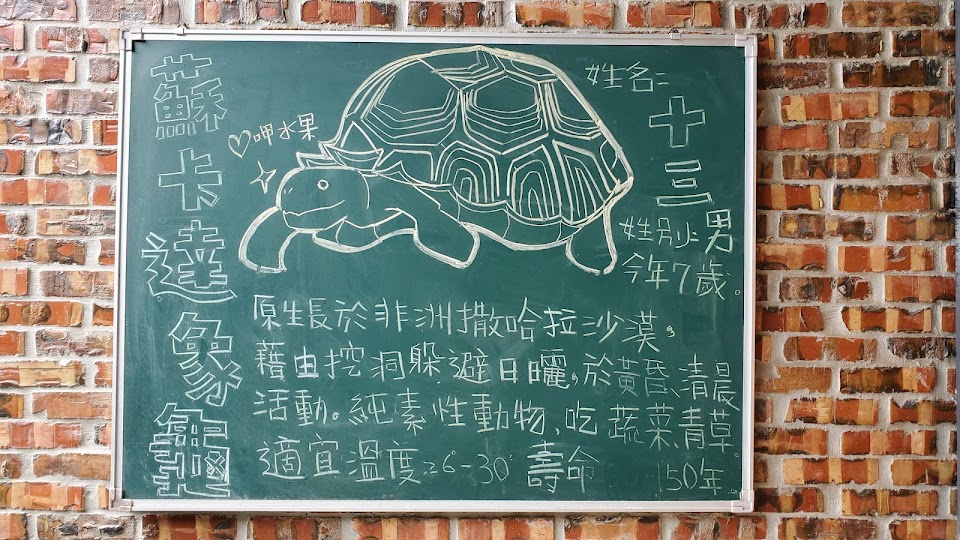 蘇卡達象龜
♡呷水果
姓名:十三
姓別:男
今年7歲。
原生長於非洲撒哈拉沙漠,
藉由挖洞躲避日曬,於黃昏、清晨
活動。純素性動物、吃蔬菜、青草
適宜溫度26°-30° 壽命150年